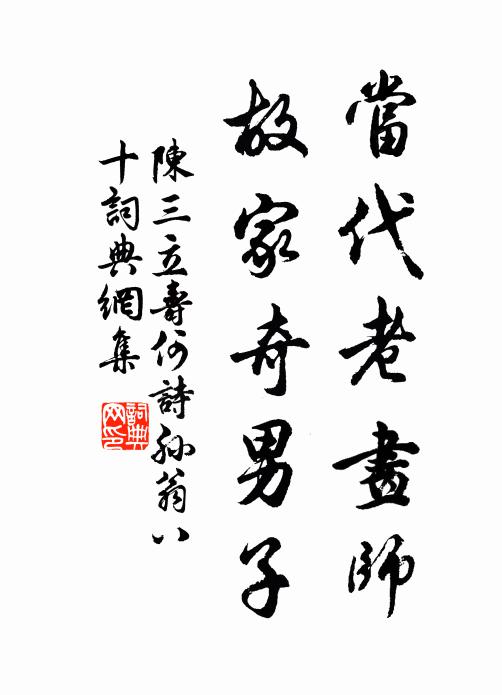 當代老畫師
故家奇男子
陳三立壽何詩孫翁八
十詞典網集
詞典
网印